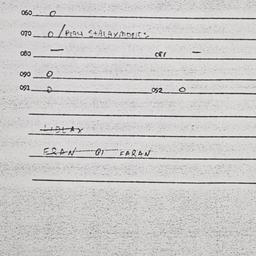 060 0
070 0 / PIGU STALAXMOPICS
080 — 081 —
090 0
091 0 092 0
LIDLAY
ERAN OI EARAN